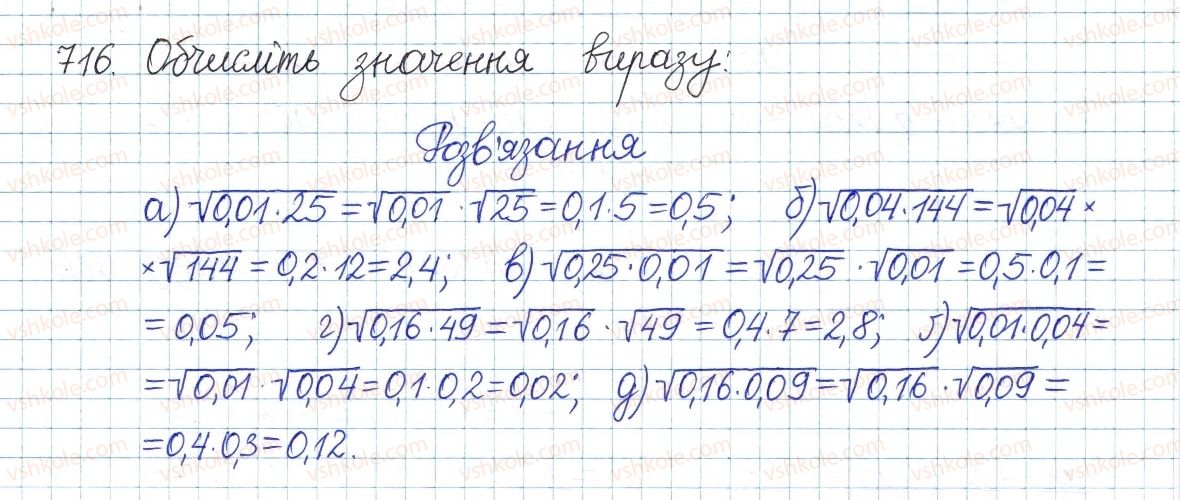 716. Обчисліть значення виразу:
Розв'язання
а) √0,01·25 = √0,01 · √25 = 0,1·5 = 0,5; б) √0,04·144 = √0,04 ×
× √144 = 0,2·12 = 2,4; в) √0,25·0,01 = √0,25 · √0,01 = 0,5·0,1 =
= 0,05; г) √0,16·49 = √0,16 · √49 = 0,4·7 = 2,8; ґ) √0,01·0,04 =
= √0,01 · √0,04 = 0,1·0,2 = 0,02; д) √0,16·0,09 = √0,16 · √0,09 =
= 0,4·0,3 = 0,12.